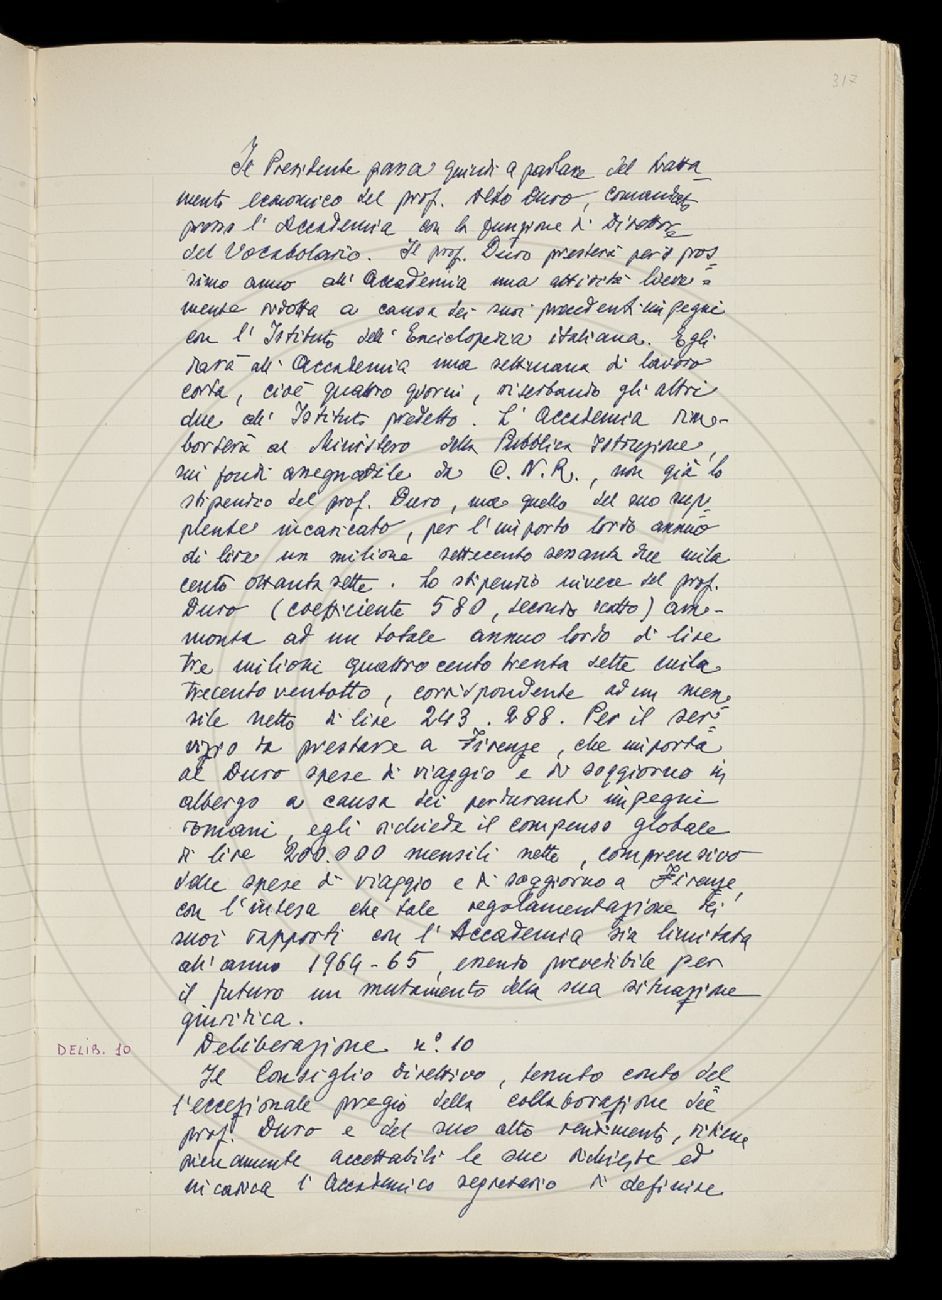 317
Il Presidente passa quindi a parlare del tratta-
mento economico del prof. Aldo Duro, comandato
presso l'Accademia con la funzione di Direttore
del Vocabolario. Il prof. Duro presterà per il pros-
simo anno all'Accademia una attività lieve-
mente ridotta a causa dei suoi precedenti impegni
con l'Istituto dell'Enciclopedia italiana. Egli
darà all'Accademia una settimana di lavoro
corta, cioè quattro giorni, riserbando gli altri
due all'Istituto predetto. L'Accademia rim-
borserà al Ministero della Pubblica Istruzione,
sui fondi assegnatile da C.N.R., non già lo
stipendio del prof. Duro, ma quello del suo sup-
plente incaricato, per l'importo lordo annuo
di lire un milione settecento sessanta due mila
cento ottanta sette. Lo stipendio invece del prof.
Duro (coefficiente 580, secondo scatto) am-
monta ad un totale annuo lordo di lire
tre milioni quattrocento trenta sette mila
trecento ventotto, corrispondente ad un men-
sile netto di lire 243.288. Per il ser-
vizio da prestare a Firenze, che importa
al Duro spese di viaggio e di soggiorno in
albergo a causa dei perduranti impegni
romani, egli richiede il compenso globale
di lire 200.000 mensili nette, comprensivo
delle spese di viaggio e di soggiorno a Firenze,
con l'intesa che tale regolamentazione dei
suoi rapporti con l'Accademia sia limitata
all'anno 1964-65, essendo prevedibile per
il futuro un mutamento della sua situazione
giuridica.
DELIB. 10
Deliberazione n.° 10
Il Consiglio direttivo, tenuto conto del
l'eccezionale pregio della collaborazione del
prof. Duro e del suo alto rendimento, ritiene
pienamente accettabili le sue richieste ed
incarica l'Accademico segretario di definire